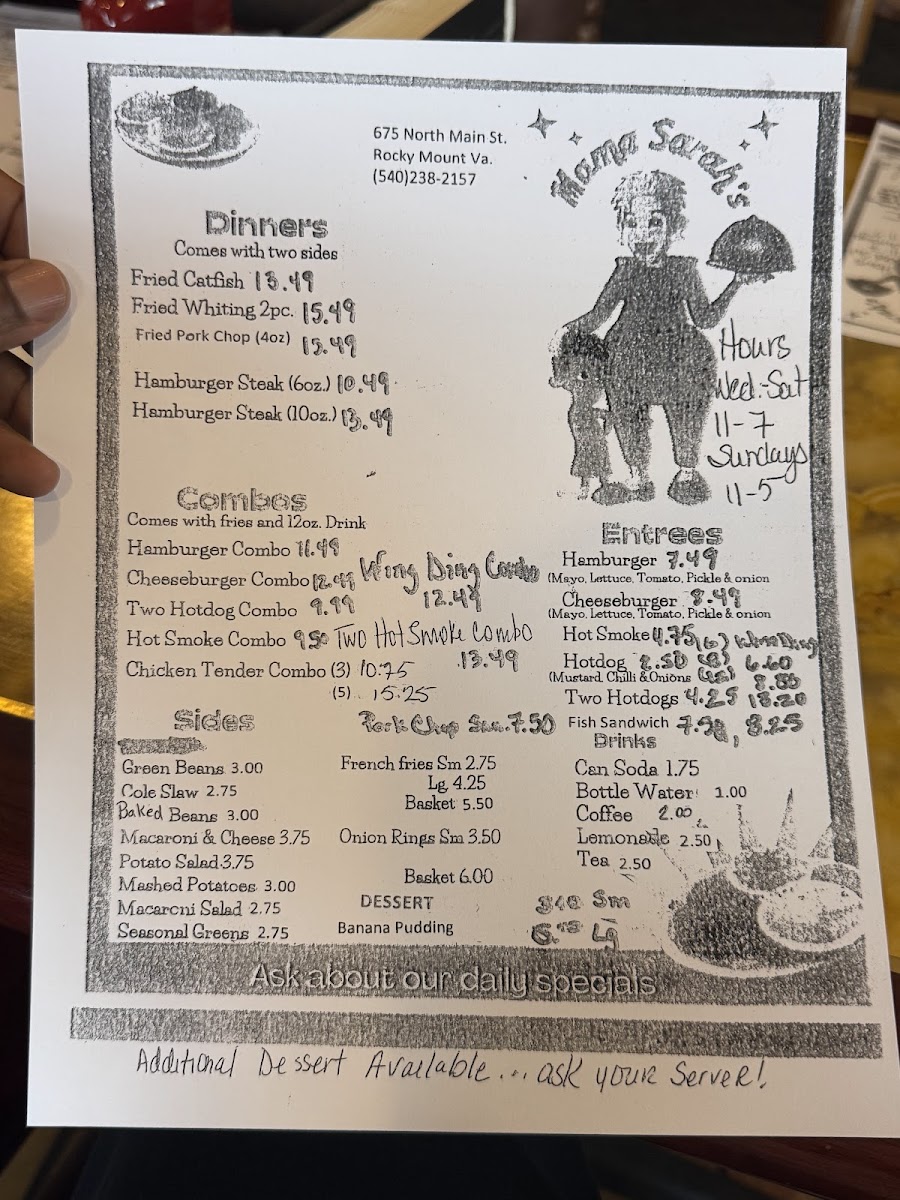 675 North Main St.
Rocky Mount Va.
(540)238-2157
Mama Sarah's
Hours
Wed.-Sat
11-7
Sundays
11-5
Dinners
Comes with two sides
Fried Catfish 13.49
Fried Whiting 2pc. 15.49
Fried Pork Chop (4oz)
Hamburger Steak (6oz.) 10.49
Hamburger Steak (10oz.) 13.49
Combos
Comes with fries and 12oz. Drink
Hamburger Combo 11.49
Cheeseburger Combo 12.49
Two Hotdog Combo 9.99
Hot Smoke Combo 9.50
Chicken Tender Combo (3) 10.75
(5) 15.25
Wing Ding Combo
12.49
Two Hot Smoke Combo
13.49
Pork Chop Sm. 7.50
Entrees
Hamburger 7.49
(Mayo, Lettuce, Tomato, Pickle & onion
Cheeseburger 8.49
(Mayo, Lettuce, Tomato, Pickle & onion
Hot Smoke 4.75 (6) Wing Ding
Hotdog 2.50 (8) 6.60
(Mustard, Chilli & Onions
Two Hotdogs 4.25 13.20
Fish Sandwich 8.25
Sides
Green Beans 3.00
Cole Slaw 2.75
Baked Beans 3.00
Macaroni & Cheese 3.75
Potato Salad 3.75
Mashed Potatoes 3.00
Macaroni Salad 2.75
Seasonal Greens 2.75
French fries Sm 2.75
Lg 4.25
Basket 5.50
Onion Rings Sm 3.50
Basket 6.00
DESSERT
Banana Pudding
Sm
Lg
Drinks
Can Soda 1.75
Bottle Water 1.00
Coffee 2.00
Lemonade 2.50
Tea 2.50
Ask about our daily specials
Additional Dessert Available... ask your Server!